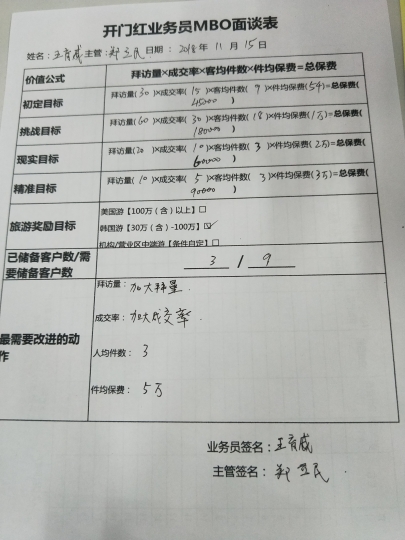 开门红业务员MBO面谈表
姓名：王育威 主管：郑立民 日期：2018年11月15日
价值公式 拜访量×成交率×客均件数×件均保费=总保费
初定目标 拜访量(30)×成交率(15)×客均件数(9)×件均保费(5千)=总保费(
45000)
挑战目标 拜访量(60)×成交率(30)×客均件数(18)×件均保费(1万)=总保费(
180000)
现实目标 拜访量(20)×成交率(10)×客均件数(3)×件均保费(2万)=总保费(
60000)
精准目标 拜访量(10)×成交率(5)×客均件数(3)×件均保费(3万)=总保费(
90000)
旅游奖励目标
美国游【100万（含）以上】□
韩国游【30万（含）-100万】☑
机构/营业区中端游【条件自定】□
已储备客户数/需
要储备客户数 3 / 9
最需要改进的动
作
拜访量：加大拜量
成交率：加大成交率.
人均件数：3
件均保费：5万
业务员签名：王育威
主管签名：郑立民.